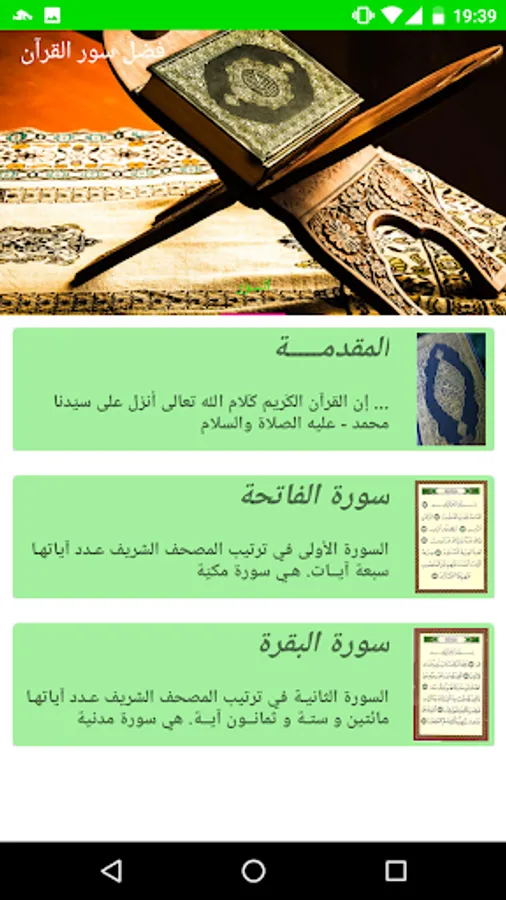 19:39
فضل سور القرآن
السور
المقدمـــــة
... إن القرآن الكريم كلام الله تعالى أنزل على سيدنا
محمد - عليه الصلاة والسلام
سورة الفاتحة
السورة الأولى في ترتيب المصحف الشريف عـدد آياتهـا
سبعة آيــات. هـي سورة مكيّة
سورة البقرة
السورة الثانيـة في ترتيب المصحف الشريف عـدد آياتهـا
مائتين و ستـة و ثمانــون آيــة. هي سورة مدنية